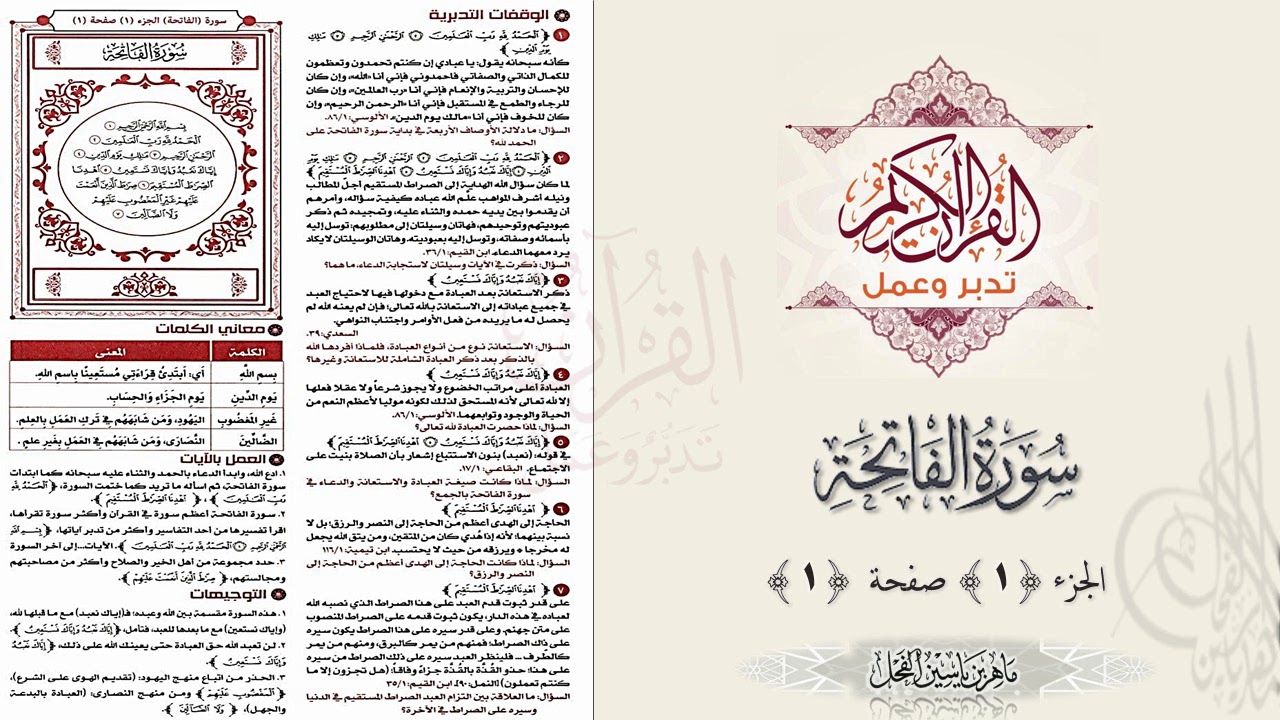 القرآن الكريم
تدبر وعمل
سورة الفاتحة
الجزء ﴿١﴾ صفحة ﴿١﴾
ماهر بن ياسين الفحل
الوقفات التدبرية
١ ﴿ الْحَمْدُ لِلَّهِ رَبِّ الْعَالَمِينَ ۝ الرَّحْمَٰنِ الرَّحِيمِ ۝ مَالِكِ
يَوْمِ الدِّينِ ﴾
كأنه سبحانه يقول: يا عبادي إن كنتم تحمدون وتعظمون
للكمال الذاتي والصفاتي فاحمدوني فإني أنا «الله»، وإن كان
للإحسان والتربية والإنعام فإني أنا «رب العالمين»، وإن كان
للرجاء والطمع في المستقبل فإني أنا «الرحمن الرحيم»، وإن
كان للخوف فإني أنا «مالك يوم الدين». الألوسي: ٨٦/١.
السؤال: ما دلالة الأوصاف الأربعة في بداية سورة الفاتحة على
الحمد لله؟
٢ ﴿ الْحَمْدُ لِلَّهِ رَبِّ الْعَالَمِينَ ۝ الرَّحْمَٰنِ الرَّحِيمِ ۝ مَالِكِ يَوْمِ
الدِّينِ ۝ إِيَّاكَ نَعْبُدُ وَإِيَّاكَ نَسْتَعِينُ ۝ اهْدِنَا الصِّرَاطَ الْمُسْتَقِيمَ ﴾
لما كان سؤال الله الهداية إلى الصراط المستقيم أجل المطالب
ونيله أشرف المواهب علّم الله عباده كيفية سؤاله، وأمرهم
أن يقدموا بين يديه حمده والثناء عليه، وتمجيده ثم ذكر
عبوديتهم وتوحيدهم، فهاتان وسيلتان إلى مطلوبهم: توسل إليه
بأسمائه وصفاته، وتوسل إليه بعبوديته. وهاتان الوسيلتان لا يكاد
يرد معهما الدعاء. ابن القيم: ٣٦/١.
السؤال: ذكرت في الآيات وسيلتان لاستجابة الدعاء، ما هما؟
٣ ﴿ إِيَّاكَ نَعْبُدُ وَإِيَّاكَ نَسْتَعِينُ ﴾
ذكر الاستعانة بعد العبادة مع دخولها فيها لاحتياج العبد
في جميع عباداته إلى الاستعانة بالله تعالى؛ فإن لم يعنه الله لم
يحصل له ما يريده من فعل الأوامر واجتناب النواهي.
السعدي: ٣٩.
السؤال: الاستعانة نوع من أنواع العبادة، فلماذا أفردها الله
بالذكر بعد ذكر العبادة الشاملة للاستعانة وغيرها؟
٤ ﴿ إِيَّاكَ نَعْبُدُ وَإِيَّاكَ نَسْتَعِينُ ﴾
العبادة أعلى مراتب الخضوع ولا يجوز شرعاً ولا عقلا فعلها
إلا لله تعالى لأنه المستحق لذلك لكونه موليا لأعظم النعم من
الحياة والوجود وتوابعهما. الألوسي: ٨٦/١.
السؤال: لماذا حصرت العبادة لله تعالى؟
٥ ﴿ إِيَّاكَ نَعْبُدُ وَإِيَّاكَ نَسْتَعِينُ ۝ اهْدِنَا الصِّرَاطَ الْمُسْتَقِيمَ ﴾
في قوله: (نعبد) بنون الاستتباع إشعار بأن الصلاة بنيت على
الاجتماع. البقاعي: ١٧/١.
السؤال: لماذا كانت صيغة العبادة والاستعانة والدعاء في
سورة الفاتحة بالجمع؟
٦ ﴿ اهْدِنَا الصِّرَاطَ الْمُسْتَقِيمَ ﴾
الحاجة إلى الهدى أعظم من الحاجة إلى النصر والرزق؛ بل لا
نسبة بينهما؛ لأنه إذا هُدي كان من المتقين، ومن يتق الله يجعل
له مخرجا * ويرزقه من حيث لا يحتسب. ابن تيمية: ١١٦/١.
السؤال: لماذا كانت الحاجة إلى الهدى أعظم من الحاجة إلى
النصر والرزق؟
٧ ﴿ اهْدِنَا الصِّرَاطَ الْمُسْتَقِيمَ ﴾
على قدر ثبوت قدم العبد على هذا الصراط الذي نصبه الله
لعباده في هذه الدار، يكون ثبوت قدمه على الصراط المنصوب
على متن جهنم. وعلى قدر سيره على هذا الصراط يكون سيره
على ذاك الصراط؛ فمنهم من يمر كالبرق، ومنهم من يمر
كالطرف ... فلينظر العبد سيره على ذلك الصراط من سيره
على هذا؛ حذو القُذَّة بالقُذَّة جزاءً وفاقاً؛ (هل تجزون إلا ما
كنتم تعملون) [النمل: ٩٠]. ابن القيم: ٣٥/١.
السؤال: ما العلاقة بين التزام العبد الصراط المستقيم في الدنيا
وسيره على الصراط في الآخرة؟
سورة (الفاتحة) الجزء (١) صفحة (١)
سُورَةُ الْفَاتِحَةِ
بِسْمِ اللَّهِ الرَّحْمَٰنِ الرَّحِيمِ ١
الْحَمْدُ لِلَّهِ رَبِّ الْعَالَمِينَ ٢
الرَّحْمَٰنِ الرَّحِيمِ ٣ مَالِكِ يَوْمِ الدِّينِ ٤
إِيَّاكَ نَعْبُدُ وَإِيَّاكَ نَسْتَعِينُ ٥ اهْدِنَا
الصِّرَاطَ الْمُسْتَقِيمَ ٦ صِرَاطَ الَّذِينَ أَنْعَمْتَ
عَلَيْهِمْ غَيْرِ الْمَغْضُوبِ عَلَيْهِمْ
وَلَا الضَّالِّينَ ٧
معاني الكلمات
الكلمة المعنى
بِسمِ اللَّهِ أي: أَبتَدِئُ قِرَاءَتِي مُستَعِينًا بِاسمِ اللهِ.
يَومِ الدِّينِ يَومِ الجَزَاءِ وَالحِسَابِ.
غَيرِ المَغضُوبِ اليَهُودِ، وَمَن شَابَهَهُم فِي تَركِ العَمَلِ بِالعِلمِ.
الضَّالِّينَ النَّصَارَى، وَمَن شَابَهَهُم فِي العَمَلِ بِغَيرِ عِلمٍ.
العمل بالآيات
١. ادع الله، وابدأ الدعاء بالحمد والثناء عليه سبحانه كما ابتدأت
سورة الفاتحة ثم اسأله ما تريد كما ختمت السورة، ﴿ الْحَمْدُ لِلَّهِ
رَبِّ الْعَالَمِينَ ﴾، ﴿ اهْدِنَا الصِّرَاطَ الْمُسْتَقِيمَ ﴾.
٢. سورة الفاتحة أعظم سورة في القرآن وأكثر سورة تقرأها،
اقرأ تفسيرها من أحد التفاسير وأكثر من تدبر آياتها، ﴿ بِسْمِ اللَّهِ
الرَّحْمَٰنِ الرَّحِيمِ ۝ الْحَمْدُ لِلَّهِ رَبِّ الْعَالَمِينَ ﴾ الآيات...إلى آخر السورة
٣. حدد مجموعة من أهل الخير والصلاح وأكثر من مصاحبتهم
ومجالستهم، ﴿ صِرَاطَ الَّذِينَ أَنْعَمْتَ عَلَيْهِمْ ﴾.
التوجيهات
١. هذه السورة مقسمة بين الله وعبده؛ فـ(إياك نعبد) مع ما قبلها لله،
(وإياك نستعين) مع ما بعدها للعبد، فتأمل، ﴿ إِيَّاكَ نَعْبُدُ وَإِيَّاكَ نَسْتَعِينُ ﴾.
٢. لن تعبد الله حق العبادة حتى يعينك الله على ذلك، ﴿ إِيَّاكَ
نَعْبُدُ وَإِيَّاكَ نَسْتَعِينُ ﴾.
٣. الحذر من اتباع منهج اليهود: (تقديم الهوى على الشرع)،
﴿ الْمَغْضُوبِ عَلَيْهِمْ ﴾ ومن منهج النصارى: (العبادة بالبدعة
والجهل)، ﴿ وَلَا الضَّالِّينَ ﴾.